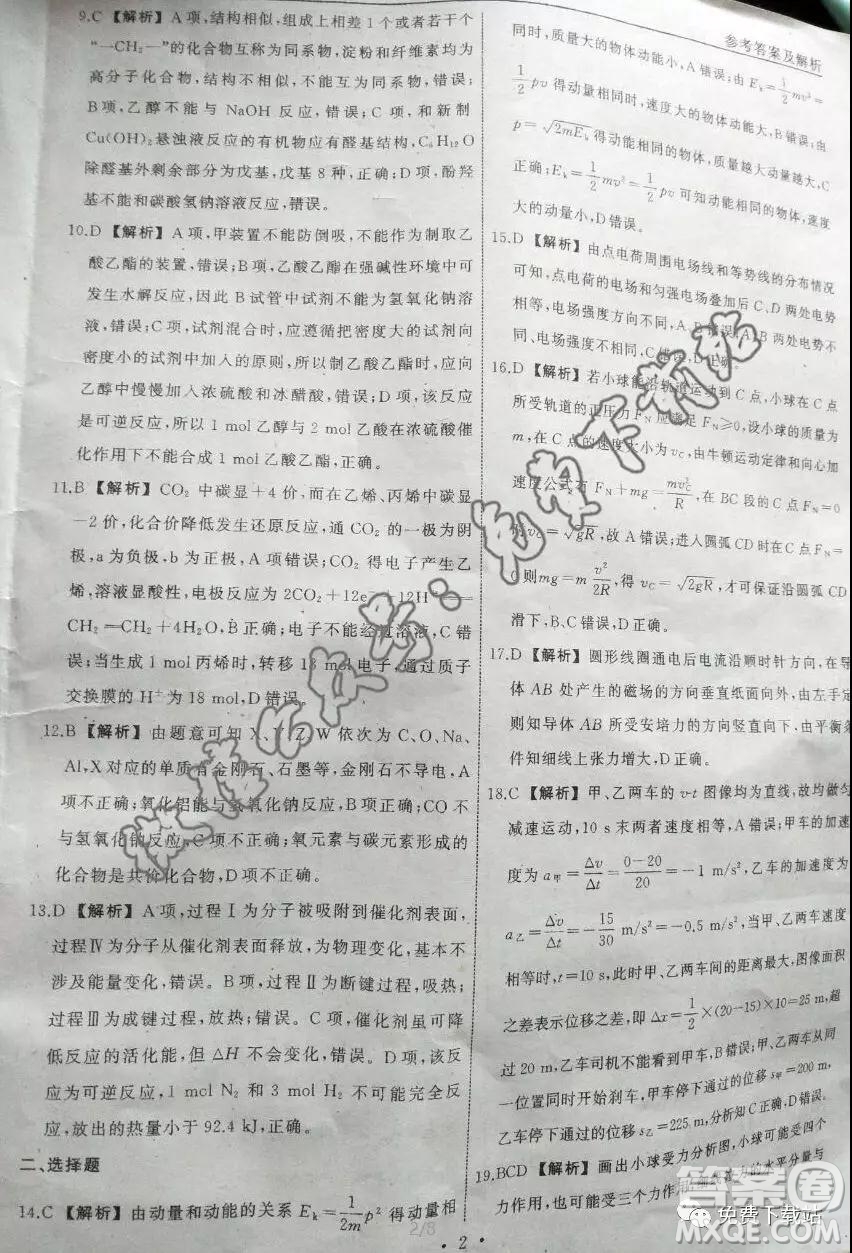 参考答案及解析
9.C 【解析】 A项,结构相似,组成上相差1个或者若干个
“—CH₂—”的化合物互称为同系物,淀粉和纤维素均为
高分子化合物,结构不相似,不能互为同系物,错误;
B项,乙醇不能与NaOH反应,错误;C项,和新制
Cu(OH)₂悬浊液反应的有机物应有醛基结构,C₆H₁₂O
除醛基外剩余部分为戊基,戊基8种,正确;D项,酚羟
基不能和碳酸氢钠溶液反应,错误。
10.D 【解析】 A项,甲装置不能防倒吸,不能作为制取乙
酸乙酯的装置,错误;B项,乙酸乙酯在强碱性环境中可
发生水解反应,因此B试管中试剂不能为氢氧化钠溶
液,错误;C项,试剂混合时,应遵循把密度大的试剂向
密度小的试剂中加入的原则,所以制乙酸乙酯时,应向
乙醇中慢慢加入浓硫酸和冰醋酸,错误;D项,该反应
是可逆反应,1 mol乙醇与2 mol乙酸在浓硫酸催
化作用下不能合成1 mol乙酸乙酯,正确。
11.B 【解析】 CO₂中碳显+4价,而在乙烯、丙烯中碳显
-2价,化合价降低发生还原反应,通CO₂的一极为阴
极,a为负极,b为正极,A项错误;CO₂得电子产生乙
烯,溶液显酸性,电极反应为2CO₂+12e⁻+12H⁺
CH₂=CH₂+4H₂O,B正确;电子不能经过溶液,C错
误;当生成1 mol丙烯时,转移18 mol电子,通过质子
交换膜的H⁺为18 mol,D错误。
12.B 【解析】 由题意可知X、Y、Z、W依次为C、O、Na、
Al,X对应的单质有金刚石、石墨等,金刚石不导电,A
项不正确;氧化铝能与氢氧化钠反应,B正确;CO不
与氢氧化钠反应,C项不正确;氧元素与碳元素形成的
化合物是共价化合物,D项不正确。
13.D 【解析】 A项,过程Ⅰ为分子被吸附到催化剂表面,
过程Ⅳ为分子从催化剂表面释放,为物理变化,基本不
涉及能量变化,错误。B项,过程Ⅱ为断键过程,吸热;
过程Ⅲ为成键过程,放热;错误。C项,催化剂虽可降
低反应的活化能,但ΔH不会变化,错误。D项,该反
应为可逆反应,1 mol N₂ 和 3 mol H₂ 不可能完全反
应,放出的热量小于92.4 kJ,正确。
二、选择题
14.C 【解析】 由动量和动能的关系Eₖ=1/2m p²得动量相
同时,质量大的物体动能小,A错误;由Eₖ=1/2 mv²=
1/2 pv得动量相同时,速度大的物体动能大,B错误;由
p=√2mEₖ得动能相同的物体,质量越大动量越大,C
正确;Eₖ=1/2 mv²=1/2 pv可知动能相同的物体,速度
大的动量小,D错误。
15.D 【解析】 由点电荷周围电场线和等势线的分布情况
可知,点电荷的电场和匀强电场叠加后C、D两处电势
相等,电场强度方向不同,A、B错误;A、B两处电势不
同、电场强度不相同,C错误,D正确。
16.D 【解析】 若小球能沿轨道运动到C点,小球在C点
所受轨道的正压力F_N应满足F_N≥0,设小球的质量为
m,在C点的速度大小为v_C,由牛顿运动定律和向心加
速度公式有F_N+mg=mv_C²/R,在BC段的C点F_N=0
则v_C=√gR,故A错误;进入圆弧CD时在C点F_N=
0则mg=m v²/2R,得v_C=√2gR,才可保证沿圆弧CD
滑下,B、C错误,D正确。
17.D 【解析】 圆形线圈通电后电流沿顺时针方向,在导
体AB处产生的磁场方向垂直纸面向外,由左手定
则知导体AB所受安培力的方向竖直向下,由平衡条
件知细线上张力增大,D正确。
18.C 【解析】 甲、乙两车的v-t图像均为直线,故均做匀
减速运动,10 s末两者速度相等,A错误;甲车的加速
度为a甲=Δv/Δt=0-20/20=-1 m/s²,乙车的加速度为
a乙=Δv/Δt=-15/30 m/s²=-0.5 m/s²,当甲、乙两车速度
相等时,t=10 s,此时甲、乙两车间的距离最大,图像面积
之差表示位移之差,即Δx=1/2×(20-15)×10=25 m,超
过20 m,乙车司机不能看到甲车,B错误;甲、乙两车从同
一位置同时开始刹车,甲车停下通过的位移s甲=200 m,
乙车停下通过的位移s乙=225 m,分析知C正确,D错误。
19.BCD 【解析】 画出小球受力分析图,小球可能受四个
力作用,也可能受三个力作用,
的水平分量与
2/8
· 2 ·
微信公众号:免费下载站
答案圈
MXQE.COM
免费下载站